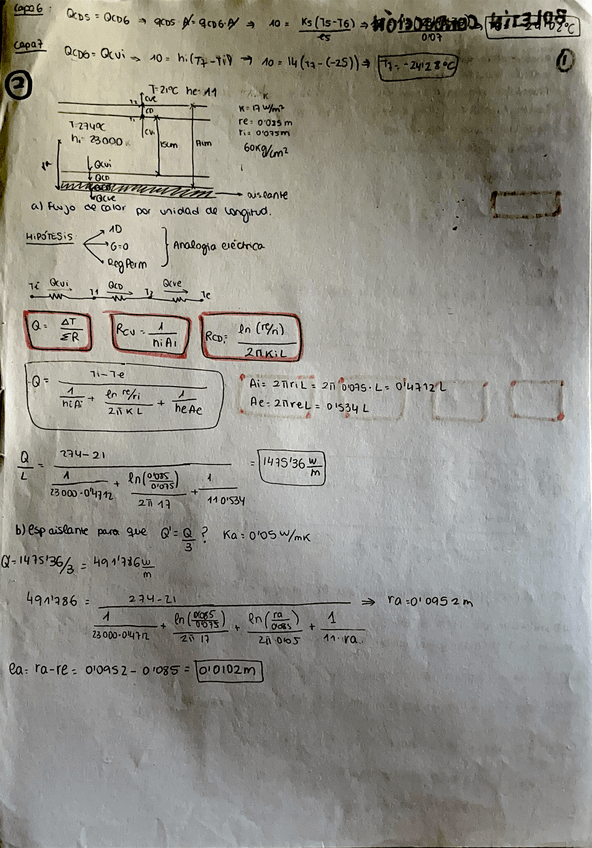 Capa 6: QCD5 = QCD6 → qCD5·A = qCD6·A → 10 = K5(T5-T6)/e5 →
Capa 7 QCD6 = QCvi → 10 = hi(T7-Ti) → 10 = 14(T7-(-25)) → T7 = -24'28ºC
1
2
T=21ºC he=11
T=274ºC
hi=23000
CVE
CD
CVi
QCVi
QCD
QCVE
15cm
17cm
K
K=17 W/m²
re = 0'085m
ri = 0'075m
60Kg/cm²
aislante
a) Flujo de calor por unidad de longitud.
HIPÓTESIS
1D
G=0
Reg Perm
Analogía eléctrica
Ti QCVi T1 QCD T2 QCVE Te
Q = ΔT/ΣR
RCV = 1/hiAi
RCD = ln(re/ri)/2πKiL
Q = Ti-Te / (1/hiAi + ln re/ri / 2πKL + 1/heAe)
Ai = 2πriL = 2π 0'075·L = 0'4712 L
Ae = 2πreL = 0'534 L
Q/L = 274-21 / (1/23000·0'4712 + ln(0'085/0'075)/2π 17 + 1/11 0'534) = 1475'36 W/m
b) esp aislante para que Q' = Q/3? Ka = 0'05 W/mK
Q' = 1475'36/3 = 491'786 W/m
491'786 = 274-21 / (1/23000·0'4712 + ln(0'085/0'075)/2π 17 + ln(ra/0'085)/2π 0'05 + 1/11··ra) ⇒ ra = 0'0952m
ea = ra-re = 0'0952 - 0'085 = 0'0102m